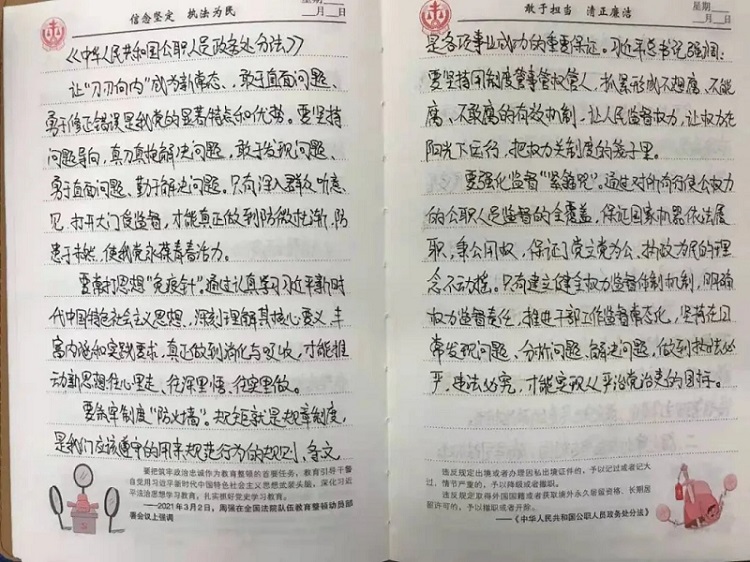 信念坚定 执法为民
星期
月 日
《中华人民共和国公职人员政务处分法》
让“刀刃向内”成为新常态、敢于直面问题、
勇于修正错误是我党的显著特点和优势。要坚持
问题导向，真刀真枪解决问题，敢于发现问题、
勇于直面问题、勤于解决问题。只有深入群众听意
见，打开大门受监督，才能真正做到防微杜渐、防
患于未然，使我党永葆青春活力。
要常打思想“免疫针”。通过认真学习习近平新时
代中国特色社会主义思想，深刻理解其核心要义、丰
富内涵和实践要求，真正做到消化与吸收，才能推
动新思想往心里走、往深里悟、往实里做。
要紧牢制度“防火墙”。规矩就是规章制度，
是我们应该遵守的用来规范行为的规则、条文
要把筑牢政治忠诚作为教育整顿的首要任务，教育引导干警
自觉用习近平新时代中国特色社会主义思想武装头脑，深化习近
平法治思想学习教育，扎实抓好党史学习教育。
——2021年3月2日，周强在全国法院队伍教育整顿动员部
署会议上强调
敢于担当 清正廉洁
星期
月 日
是各项事业成功的重要保证。习近平总书记强调：
要坚持用制度管事管权管人，抓紧形成不想腐、不能
腐、不敢腐的有效机制，让人民监督权力，让权力在
阳光下运行，把权力关制度的笼子里。
要强化监督“紧箍咒”。通过对所有行使公权力
的公职人员监督的全覆盖，保证国家机器依法履
职，秉公用权，保证了党立党为公、执政为民的理
念不动摇。只有建立健全权力监督体制机制，明确
权力监督责任，推电干部工作监督常态化，坚持在日
常发现问题、分析问题、解决问题，做到执法必
严、违法必究，才能实现从严治党治责的目标。
违反规定出境或者办理因私出境证件的，予以记过或者记大
过；情节严重的，予以降级或者撤职。
违反规定取得外国国籍或者获取境外永久居留资格、长期居
留许可的，予以撤职或者开除。
——《中华人民共和国公职人员政务处分法》